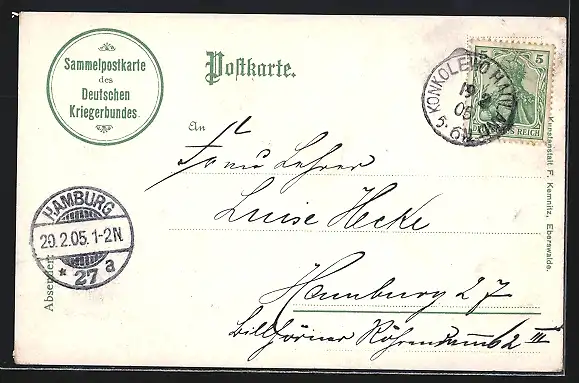 Sammelpostkarte
des
Deutschen
Kriegerbundes
Postkarte.
5
5
REICH
KONKOLEWO HAULAND
19 2
05
5-6N.
An
Frau Lehrer
Luise Hecke
Hamburg 27
Billhörner Röhrendamm 62 III
HAMBURG
20.2.05.1-2N.
* 27 a
Absender:
Kunstanstalt F. Kemnitz, Eberswalde.